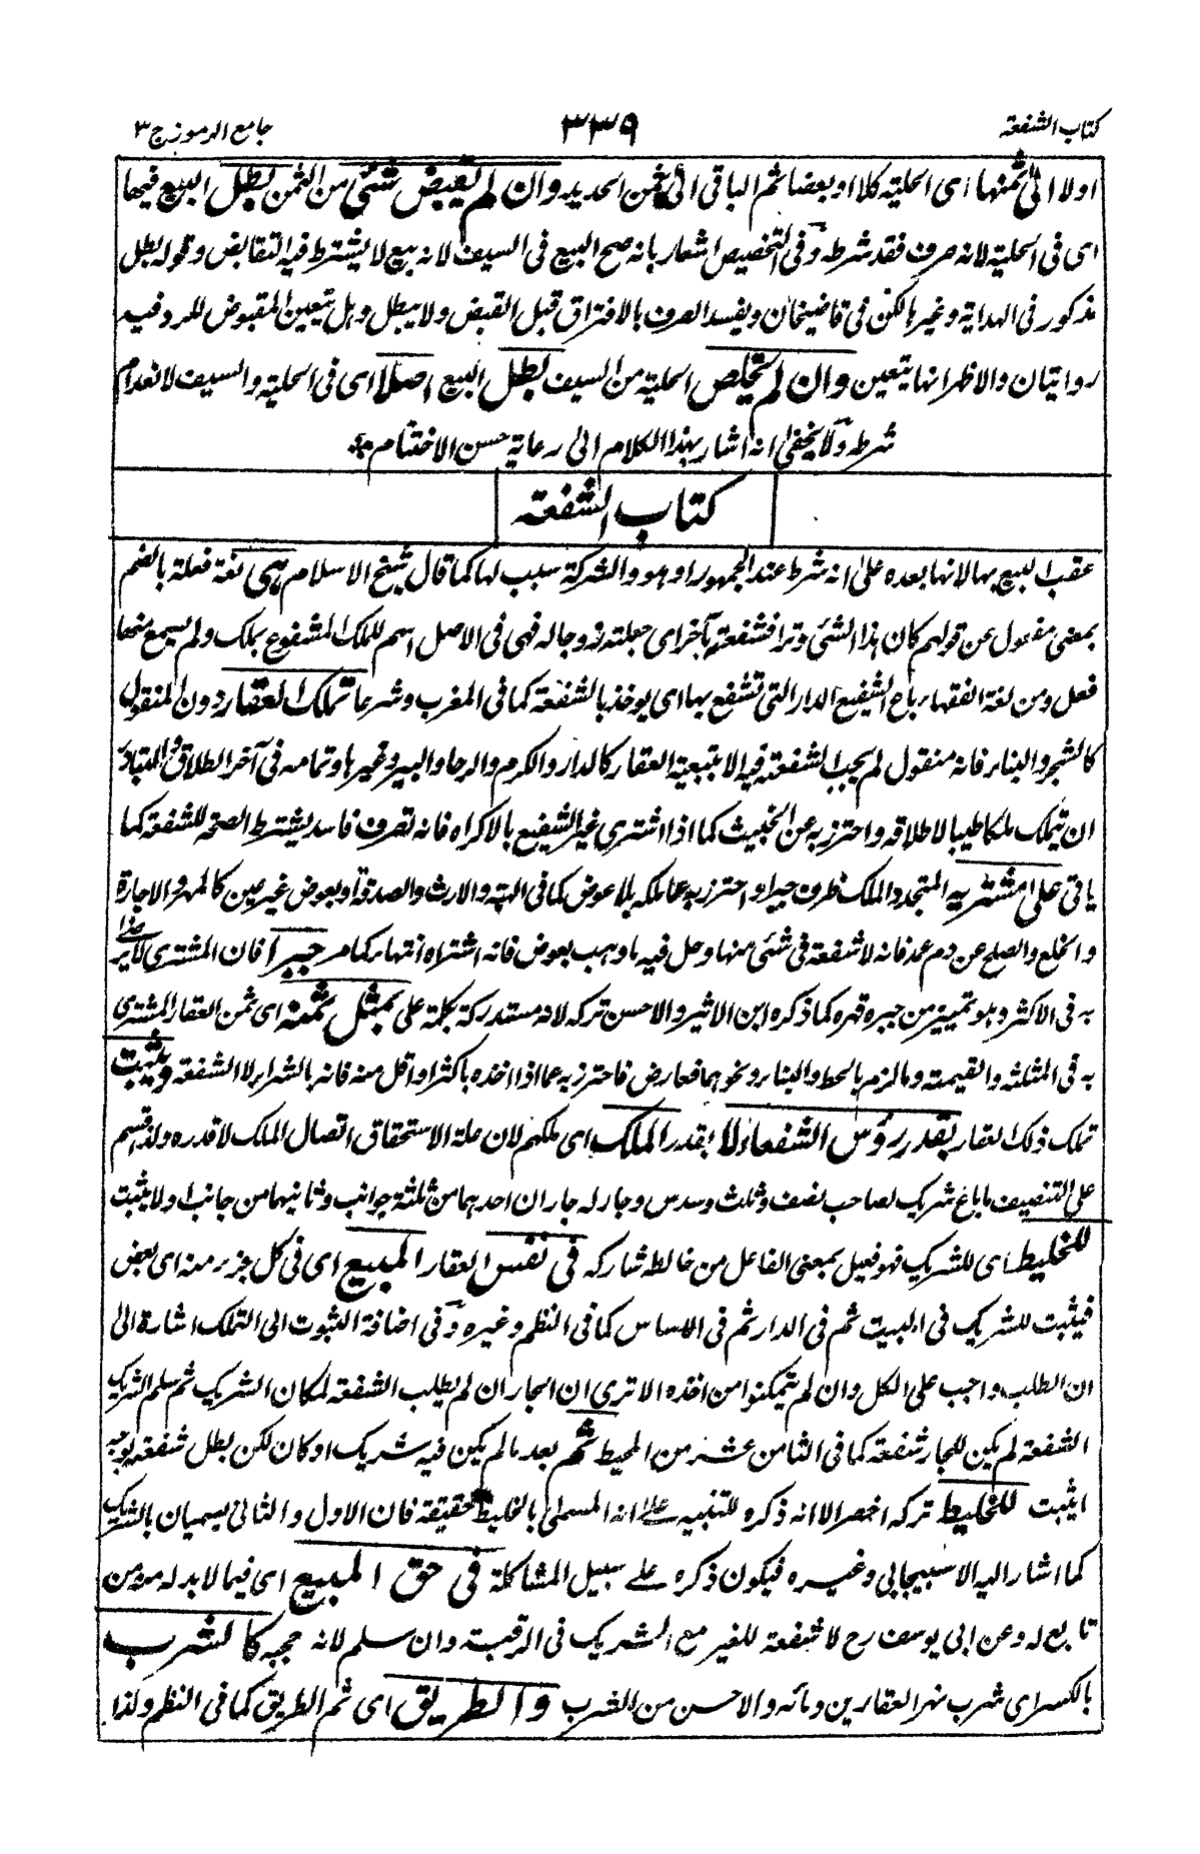 كتاب الشفعة
٣٣٩
جامع الرموز ج ٣
اولا الى ثمنها اى الحلية كلا او بعضا ثم الباقى الى ثمن الحديد وان لم يقبض شئ من الثمن بطل البيع فيها
اى فى الحلية لانه صرف فقد شرطه وفى التخصيص اشعار بانه صح البيع فى السيف لانه بيع لا يشترط فيه التقابض وقوله بطل
مذكور فى الهداية وغيرها لكن فى قاضيخان ويفسد الصرف بالافتراق قبل القبض ولا يبطل وهل يتعين المقبوض للرد فيه
روايتان والاظهر انها يتعين وان لم يتخلص الحلية من السيف بطل البيع اصلا اى فى الحلية والسيف لانعدام
شرطه ولا يخفى انه اشار بهذا الكلام الى رعاية حسن الاختتام
كتاب الشفعة
عقب البيع بها لانها بعده على انه شرط عند الجمهور او هو والشركة سبب لها كما قال شيخ الاسلام هى لغة فعلة بالضم
بمعنى مفعول من قولهم كان هذا الشئ وترا فشفعته بآخر اى جعلته زوجا له فهى فى الاصل اسم للملك المشفوع بملك ولم يسمع منها
فعل ومن لغة الفقهاء باع الشفيع الدار التى تشفع بها اى يوخذ بالشفعة كما فى المغرب وشرعا تملك العقار دون المنقول
كالشجر والبناء فانه منقول لم يجب الشفعة فيه الا بتبعية العقار كالدار والكرم والرحا والبير وغيرها وتمامه فى آخر الطلاق والمتبادر
ان تيملك ملكا طيبا لاطلاقه واحترز به عن الخبيث كما اذا اشترى غير الشفيع بالاكراه فانه تصرف فاسد يشترط الصحة للشفعة كما
ياتى على مشتريه المتجدد الملك ظرف جبرا واحترز به عما ملكه بلا عوض كما فى الهبة والارث والصدقة او بعوض غير عين كالمهر والاجارة
والخلع والصلح عن دم عمد فانه لا شفعة فى شئ منها ودخل فيه ما وهب بعوض فانه اشتراه انتهاء كما مر جبرا فان المشترى لا يرضى
به فى الاكثر وهو تمييز من جبره قهره كما ذكره ابن الاثير والاحسن تركه لانه مستدركة بكلمة على بمثل ثمنه اى ثمن العقار المشترى
به فى المثلية والقيمة وما لزم بالحط والبناء ونحوهما فعارض فاحترز به عما اذا اخذه باكثر او اقل منه فانه بالشراء لا الشفعة ويثبت
تملك ذلك العقار بقدر رؤس الشفعاء لا بقدر الملك اى ملكهم لان علة الاستحقاق اتصال الملك لا قدره ولذا قسم
على التنصيف ما باع شريك لصاحب نصف وثلث وسدس وجار له جاران احدهما من ثلثة جوانب وثانيهما من جانب ولا يثبت
للخليط اى للشريك فهو فعيل بمعنى الفاعل من خالطه شاركه فى نفس العقار المبيع اى فى كل جزء منه اى بعض
فيثبت للشريك فى البيت ثم فى الدار ثم فى الاساس كما فى النظم وغيره وفى اضافة الثبوت الى التملك اشارة الى
ان الطلب واجب على الكل وان لم يتمكنوا من اخذه الا ترى ان الجار ان لم يطلب الشفعة لمكان الشريك ثم سلم الشريك
الشفعة لم يكن للجار شفعة كما فى الثامن عشر من المحيط ثم بعد ما لم يكن فيه شريك او كان لكن بطل شفعته بوجه
يثبت للخليط تركه اخصر الا انه ذكره للتنبيه على انه المسمى بالخليط حقيقة فان الاول والثانى يسميان بالشريك
كما اشار اليه الاسبيجابى وغيره فيكون ذكره على سبيل المشاكلة فى حق المبيع اى فيما لا بد له منه من
تابع له وعن ابى يوسف رح لا شفعة للغير مع الشريك فى الرقبة وان سلم لانه حجبه كالشرب
بالكسر اى شرب نهر العقارين ومائه والاحسن من الشرب والطريق اى ثم الطريق كما فى النظم ولذا